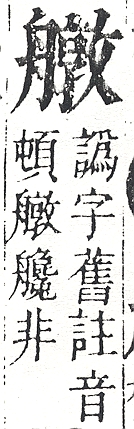 譌字舊註音
頓艬非